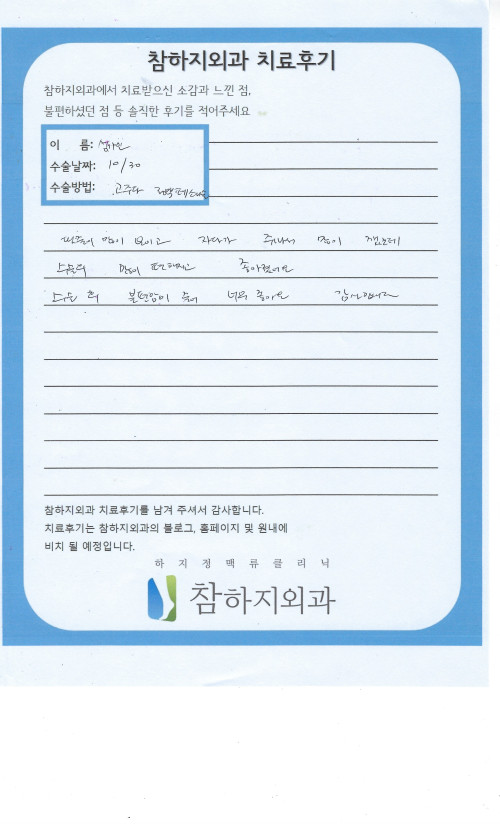 참하지외과 치료후기
참하지외과에서 치료받으신 소감과 느낀 점,
불편하셨던 점 등 솔직한 후기를 적어주세요
이 름:
수술날짜: 10/30
수술방법: 고주파
많이 보이고 자다가 쥐나서 많이 깼는데
수술후 많이 편해지고 좋아졌어요
수술 후 불편함이 줄어 너무 좋아요 감사합니다
참하지외과 치료후기를 남겨 주셔서 감사합니다.
치료후기는 참하지외과의 블로그, 홈페이지 및 원내에
비치 될 예정입니다.
하지정맥류클리닉
참하지외과